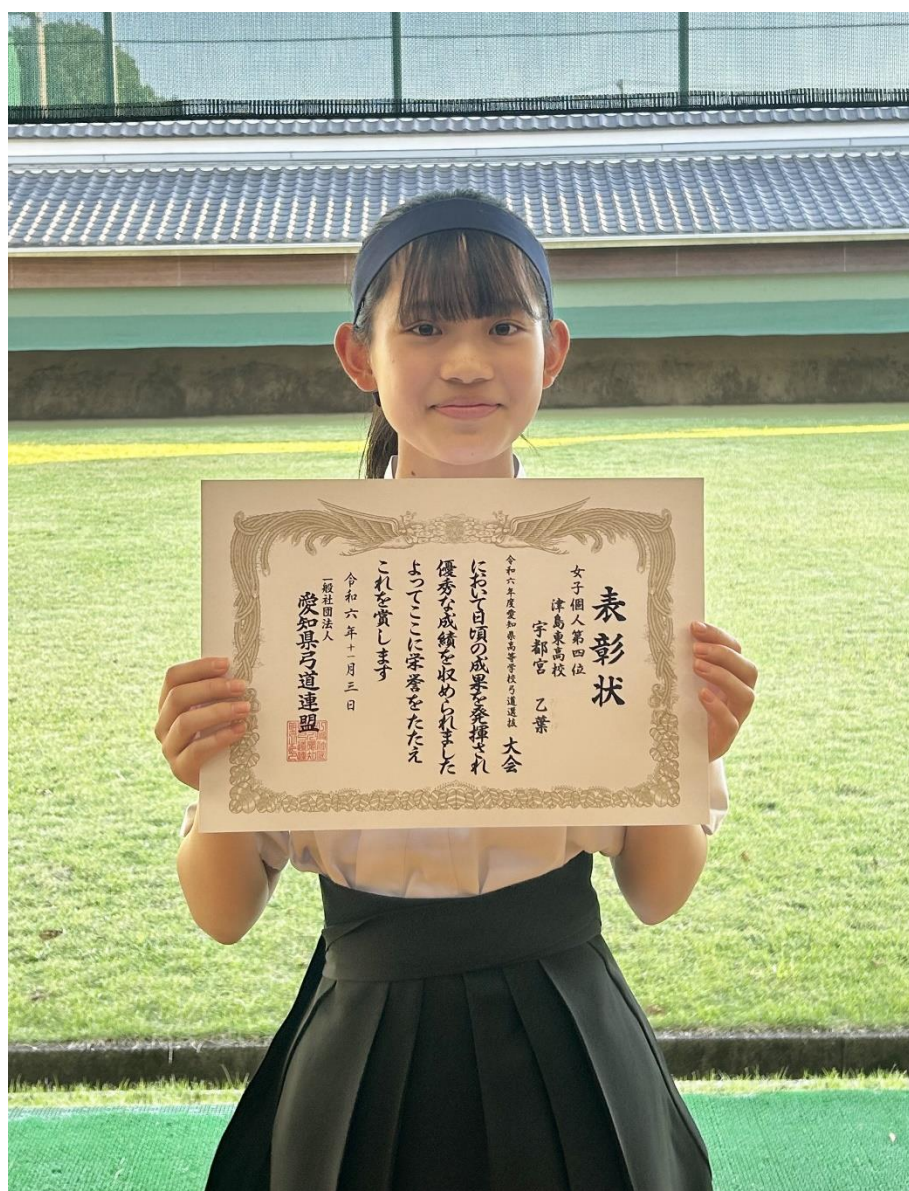 表彰状
女子個人第四位
津島東高校
宇都宮 乙葉
令和六年度愛知県高等学校弓道選抜 大会
において日頃の成果を発揮され
優秀な成績を収められました
よってここに栄誉をたたえ
これを賞します
令和六年十一月三日
一般社団法人
愛知県弓道連盟